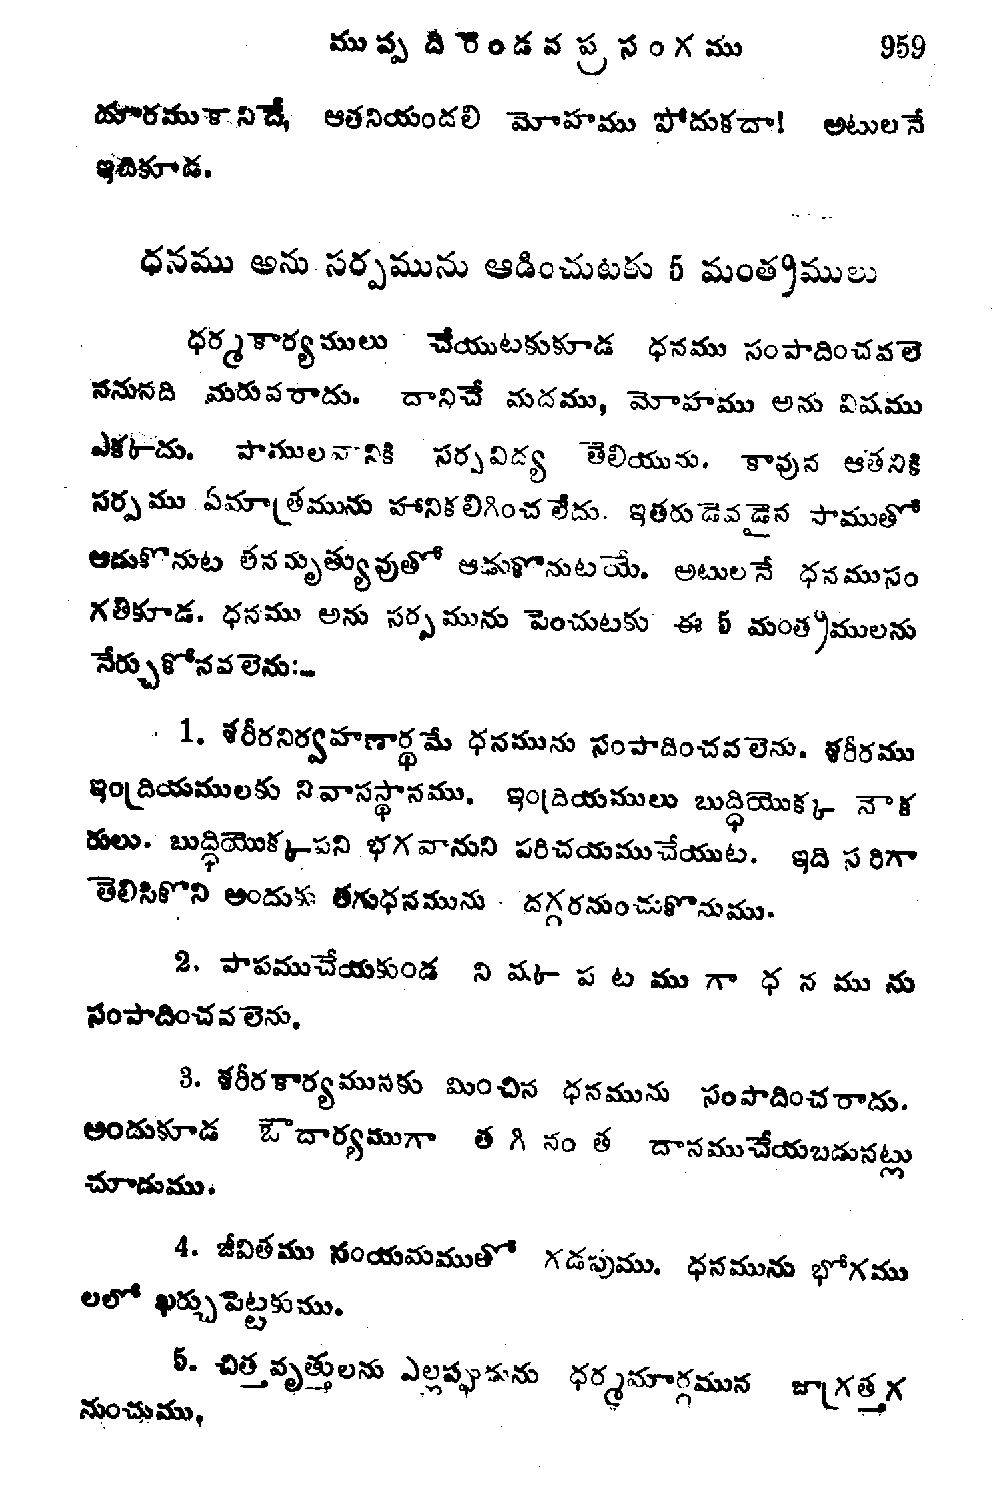 ముప్పదిరెండవ ప్రసంగము 959
దూరముకానిదే, ఆతనియందలి మోహము పోదుకదా! అటులనే
ఇదికూడ.
ధనము అను సర్పమును ఆడించుటకు 5 మంత్రములు
ధర్మకార్యములు చేయుటకుకూడ ధనము సంపాదించవలె
ననునది మరువరాదు. దానిచే మదము, మోహము అను విషము
ఎక్కదు. పాములవానికి సర్పవిద్య తెలియును. కావున ఆతనికి
సర్పము ఏమాత్రమును హానికలిగించలేదు. ఇతరుడెవడైన పాముతో
ఆడుకొనుట తనమృత్యువుతో ఆడుకొనుటయే. అటులనే ధనముసం
గతికూడ. ధనము అను సర్పమును పెంచుటకు ఈ 5 మంత్రములను
నేర్చుకోనవలెను:—
1. శరీరనిర్వహణార్థమే ధనమును సంపాదించవలెను. శరీరము
ఇంద్రియములకు నివాసస్థానము. ఇంద్రియములు బుద్ధియొక్క నౌక
రులు. బుద్ధియొక్కపని భగవానుని పరిచయముచేయుట. ఇది సరిగా
తెలిసికొని అందుకు తగుధనమును దగ్గరనుంచుకొనుము.
2. పాపముచేయకుండ నిష్కపటముగా ధనమును
సంపాదించవలెను.
3. శరీరకార్యమునకు మించిన ధనమును సంపాదించరాదు.
అందుకూడ ఔదార్యముగా తగినంత దానముచేయబడునట్లు
చూడుము.
4. జీవితము సంయమముతో గడపుము. ధనమును భోగము
లలో ఖర్చుపెట్టకుము.
5. చిత్తవృత్తులను ఎల్లప్పుడును ధర్మమార్గమున జాగ్రత్తగ
నుంచుము,